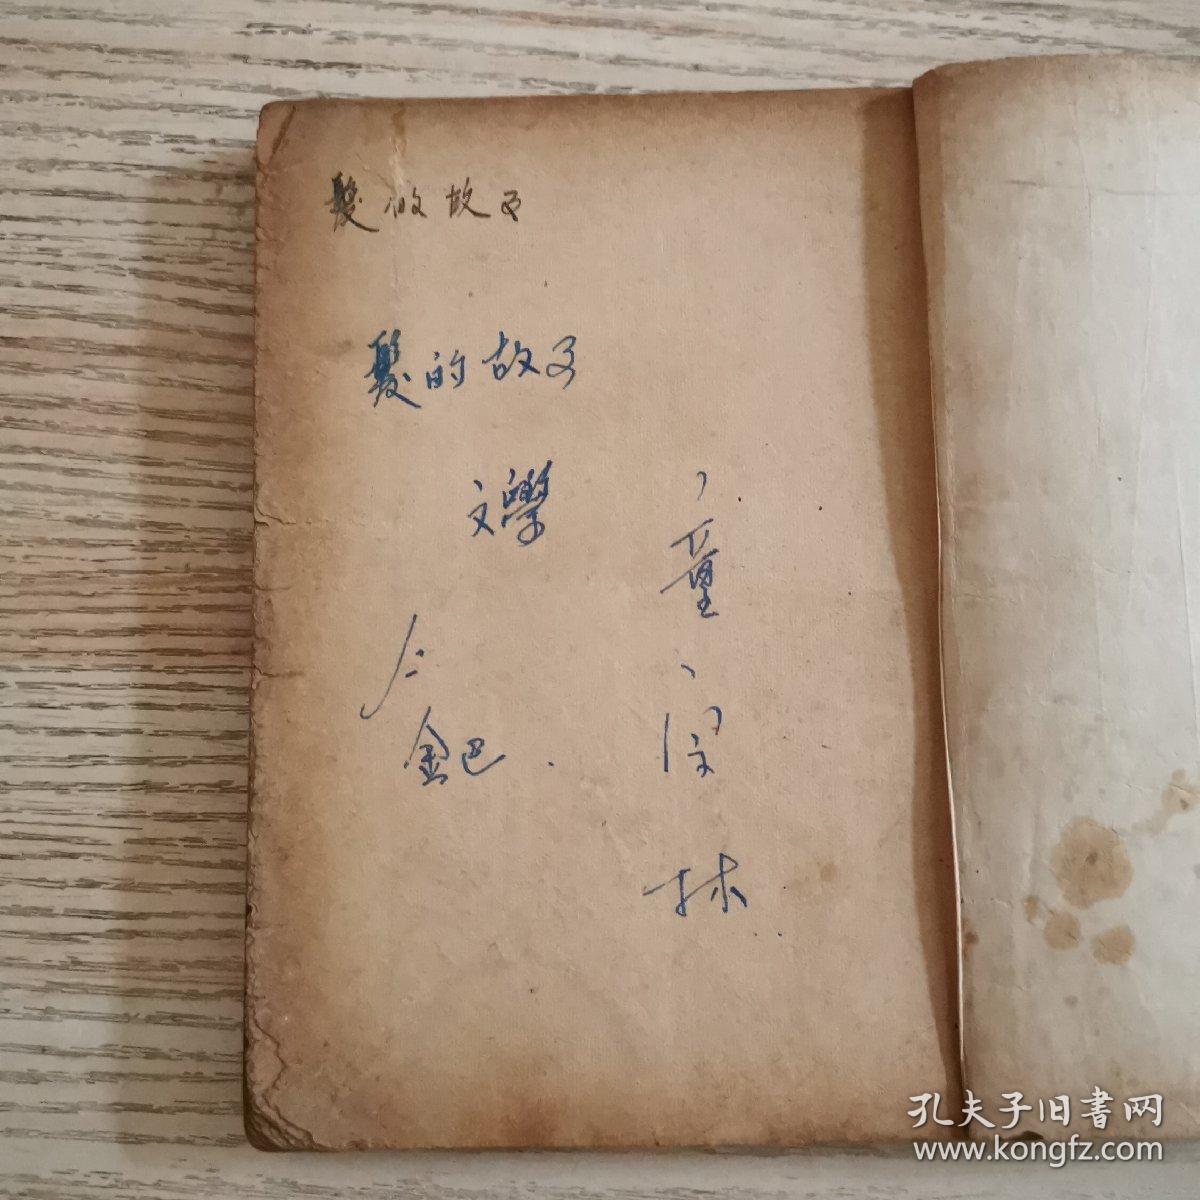 髮的故
髮的故
文學
童
金巴
林
孔夫子旧書网
www.kongfz.com